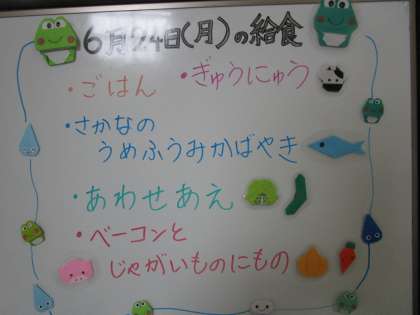 6月24日(月)の給食
・ごはん ・ぎゅうにゅう
・さかなの
うめふうみかばやき
・あわせあえ
・ベーコンと
じゃがいものにもの